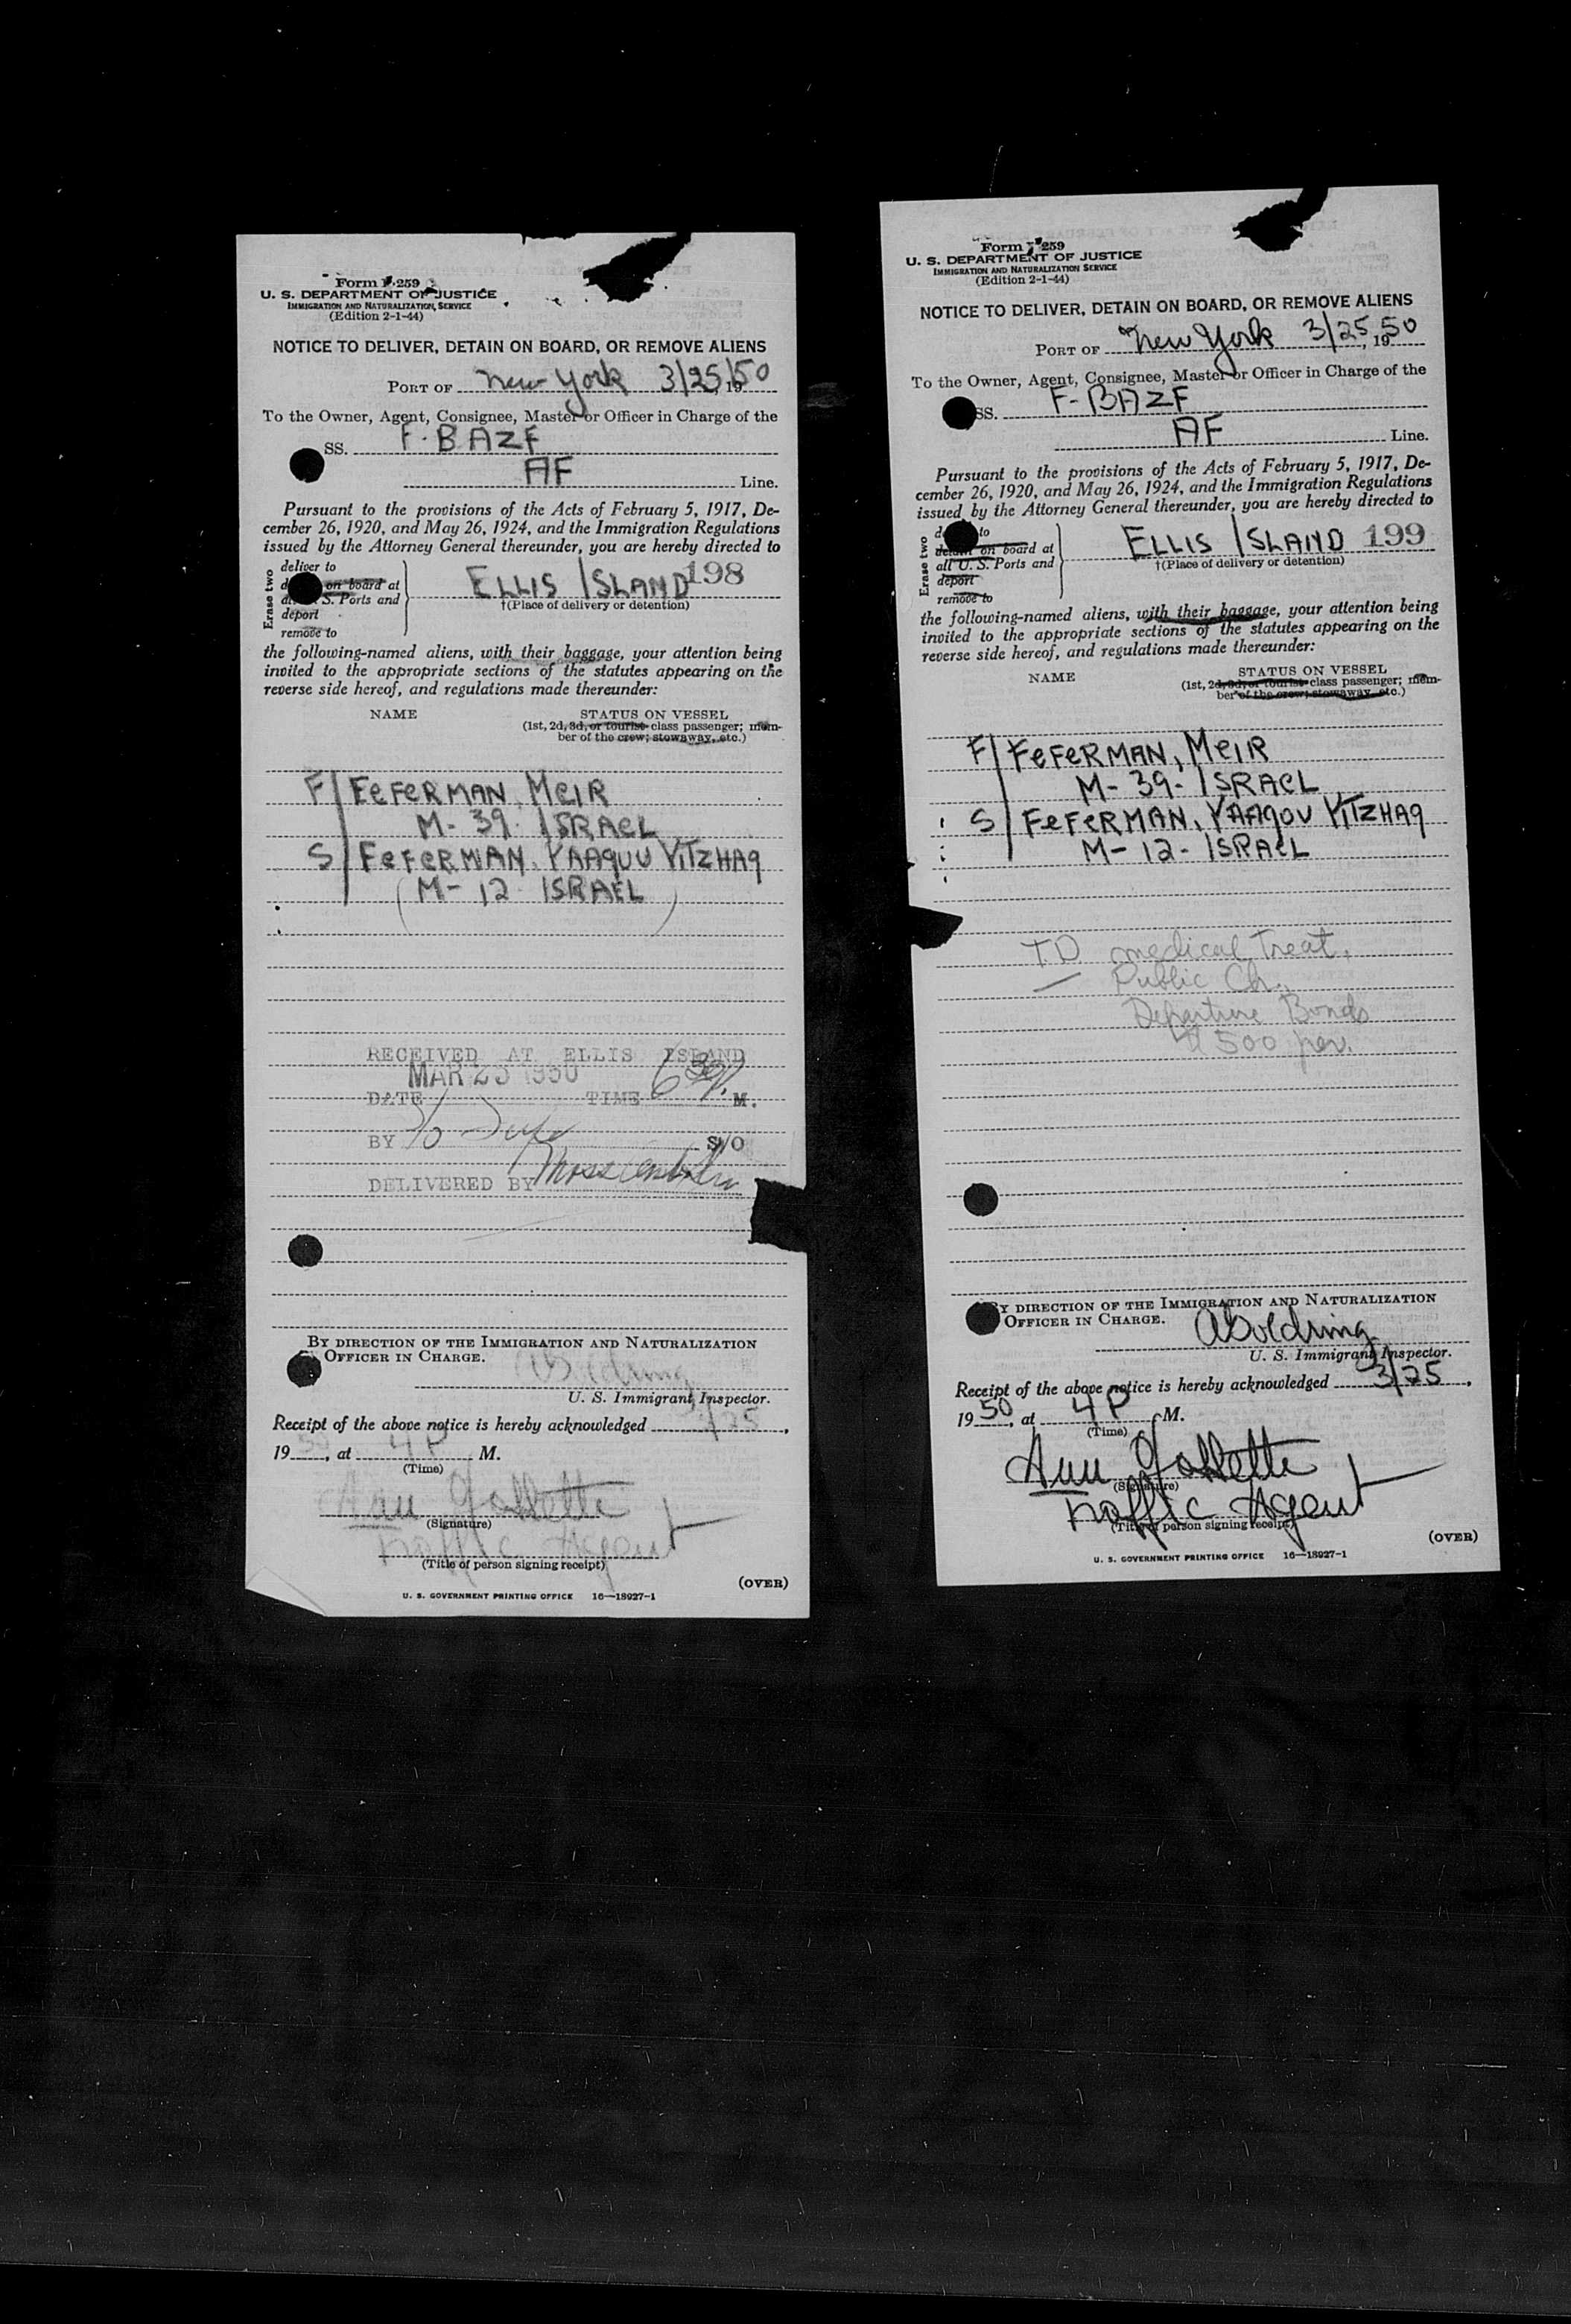 Form I-259
U. S. DEPARTMENT OF JUSTICE
IMMIGRATION AND NATURALIZATION SERVICE
(Edition 2-1-44)
NOTICE TO DELIVER, DETAIN ON BOARD, OR REMOVE ALIENS
PORT OF New York 3/25/50, 19
To the Owner, Agent, Consignee, Master or Officer in Charge of the
SS. F-BAZF
AF Line.
Pursuant to the provisions of the Acts of February 5, 1917, De-
cember 26, 1920, and May 26, 1924, and the Immigration Regulations
issued by the Attorney General thereunder, you are hereby directed to
Erase two
deliver to
on board at
S. Ports and
deport
remove to
ELLIS ISLAND 198
†(Place of delivery or detention)
the following-named aliens, with their baggage, your attention being
invited to the appropriate sections of the statutes appearing on the
reverse side hereof, and regulations made thereunder:
NAME STATUS ON VESSEL
(1st, 2d, 3d, or tourist class passenger; mem-
ber of the crew; stowaway, etc.)
F/ FEFERMAN, MEIR
M- 39- ISRAEL
S/ FEFERMAN, YAAQUV YITZHAQ
(M- 12- ISRAEL)
RECEIVED AT ELLIS ISLAND
MAR 25 1950
DATE TIME 6 30 P. M.
BY S/O
DELIVERED BY
BY DIRECTION OF THE IMMIGRATION AND NATURALIZATION
OFFICER IN CHARGE.
U. S. Immigrant Inspector.
Receipt of the above notice is hereby acknowledged 3/25,
19 50, at 4 P M.
(Time)
Ann
(Signature)
Traffic Agent
(Title of person signing receipt)
(OVER)
U. S. GOVERNMENT PRINTING OFFICE 16—18927-1
Form I-259
U. S. DEPARTMENT OF JUSTICE
IMMIGRATION AND NATURALIZATION SERVICE
(Edition 2-1-44)
NOTICE TO DELIVER, DETAIN ON BOARD, OR REMOVE ALIENS
PORT OF New York 3/25, 1950
To the Owner, Agent, Consignee, Master or Officer in Charge of the
SS. F-BAZF
AF Line.
Pursuant to the provisions of the Acts of February 5, 1917, De-
cember 26, 1920, and May 26, 1924, and the Immigration Regulations
issued by the Attorney General thereunder, you are hereby directed to
Erase two
to
detain on board at
all U. S. Ports and
deport
remove to
ELLIS ISLAND 199
†(Place of delivery or detention)
the following-named aliens, with their baggage, your attention being
invited to the appropriate sections of the statutes appearing on the
reverse side hereof, and regulations made thereunder:
NAME STATUS ON VESSEL
(1st, 2d, 3d, or tourist class passenger; mem-
ber of the crew; stowaway, etc.)
F/ FEFERMAN, MEIR
M- 39- ISRAEL
S/ FEFERMAN, YAAQOV YITZHAQ
M- 12- ISRAEL
T.D. medical treat.
Public Ch.
Departure Bonds
$500 per.
BY DIRECTION OF THE IMMIGRATION AND NATURALIZATION
OFFICER IN CHARGE.
U. S. Immigrant Inspector.
Receipt of the above notice is hereby acknowledged 3/25,
19 50, at 4 P M.
(Time)
Ann
(Signature)
Traffic Agent
(Title of person signing receipt)
(OVER)
U. S. GOVERNMENT PRINTING OFFICE 16—18927-1